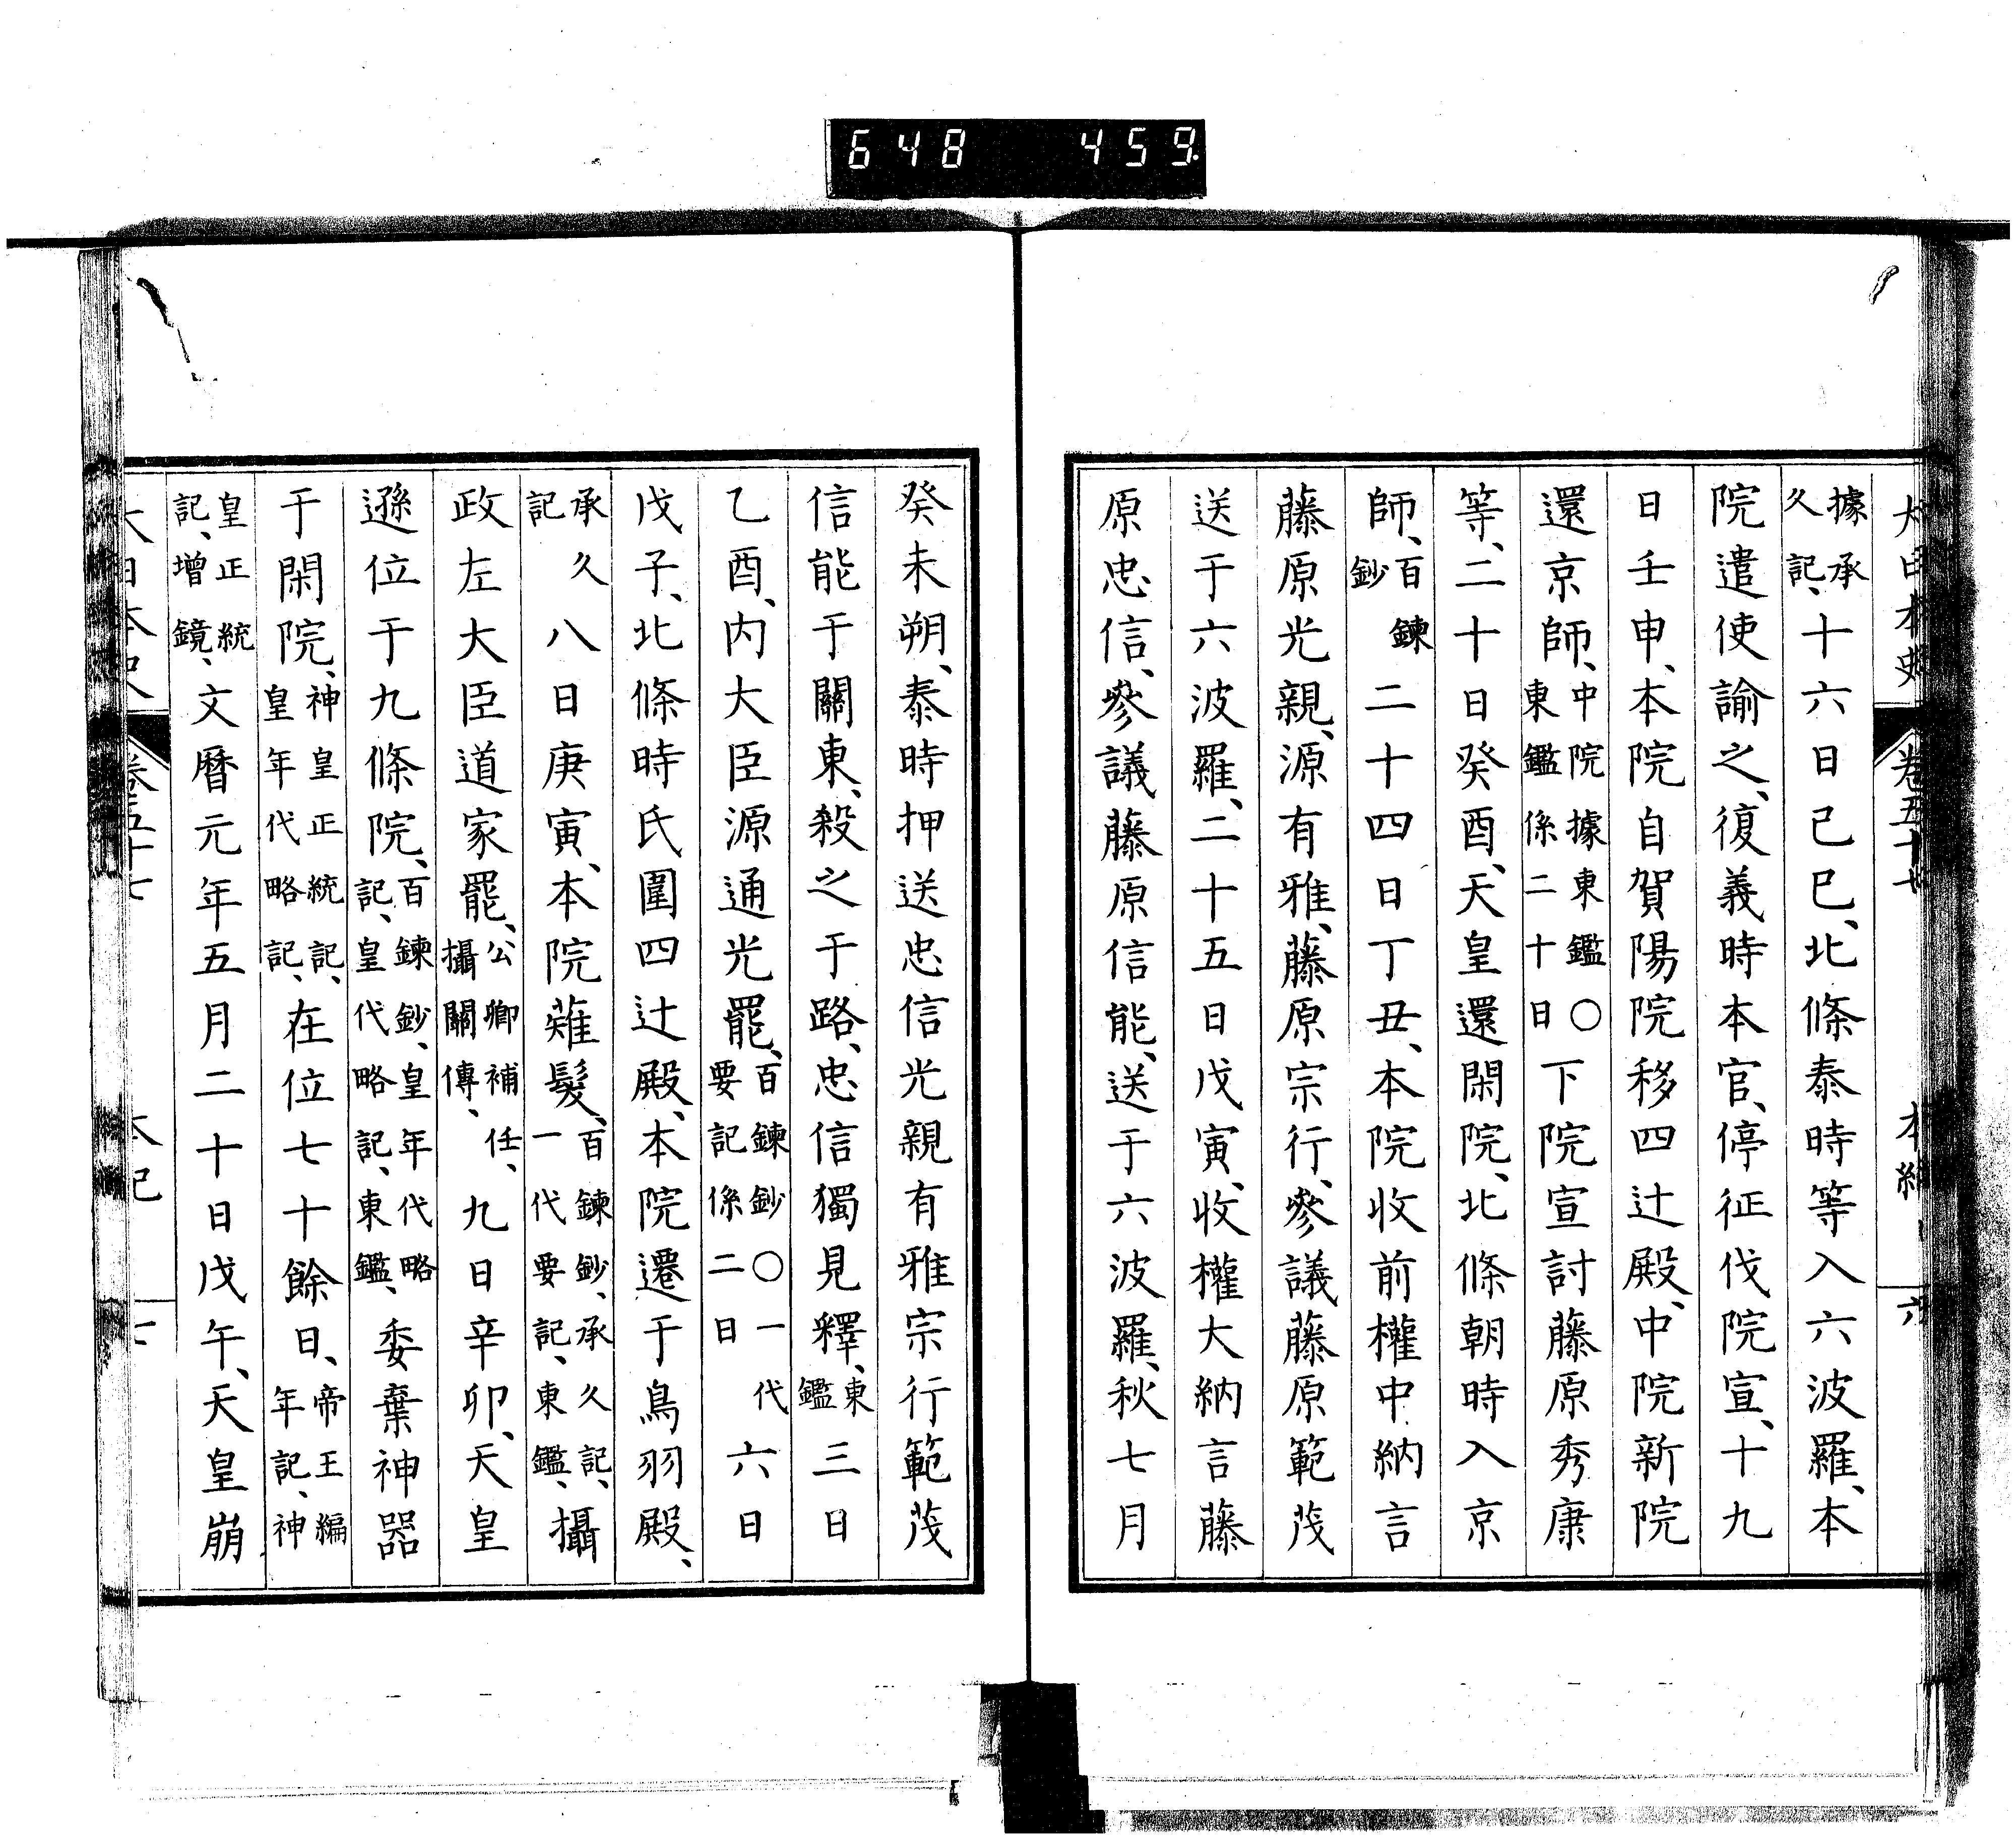 648 459
大日本史 卷五十七 本紀 六
據承久記、十六日己巳、北條泰時等入六波羅、本
院遣使諭之、復義時本官、停征伐院宣、十九
日壬申、本院自賀陽院移四辻殿、中院新院
還京師、中院據東鑑〇東鑑係二十日下院宣討藤原秀康
等、二十日癸酉、天皇還閑院、北條朝時入京
師、百鍊鈔二十四日丁丑、本院收前權中納言
藤原光親、源有雅、藤原宗行、參議藤原範茂
送于六波羅、二十五日戊寅、收權大納言藤
原忠信、參議藤原信能、送于六波羅、秋七月
癸未朔、泰時押送忠信光親有雅宗行範茂
信能于關東、殺之于路、忠信獨見釋、東鑑三日
乙酉、内大臣源通光罷、百鍊鈔〇一代要記係二日六日
戊子、北條時氏圍四辻殿、本院遷于鳥羽殿、
承久記八日庚寅、本院薙髮、百鍊鈔、承久記、一代要記、東鑑、攝
政左大臣道家罷、公卿補任、攝關傳、九日辛卯、天皇
遜位于九條院、百鍊鈔、皇年代略記、皇代略記、東鑑、委棄神器
于閑院、神皇正統記、皇年代略記、在位七十餘日、帝王編年記、神
皇正統記、增鏡、文曆元年五月二十日戊午、天皇崩
大日本史 卷五十七 本紀 七